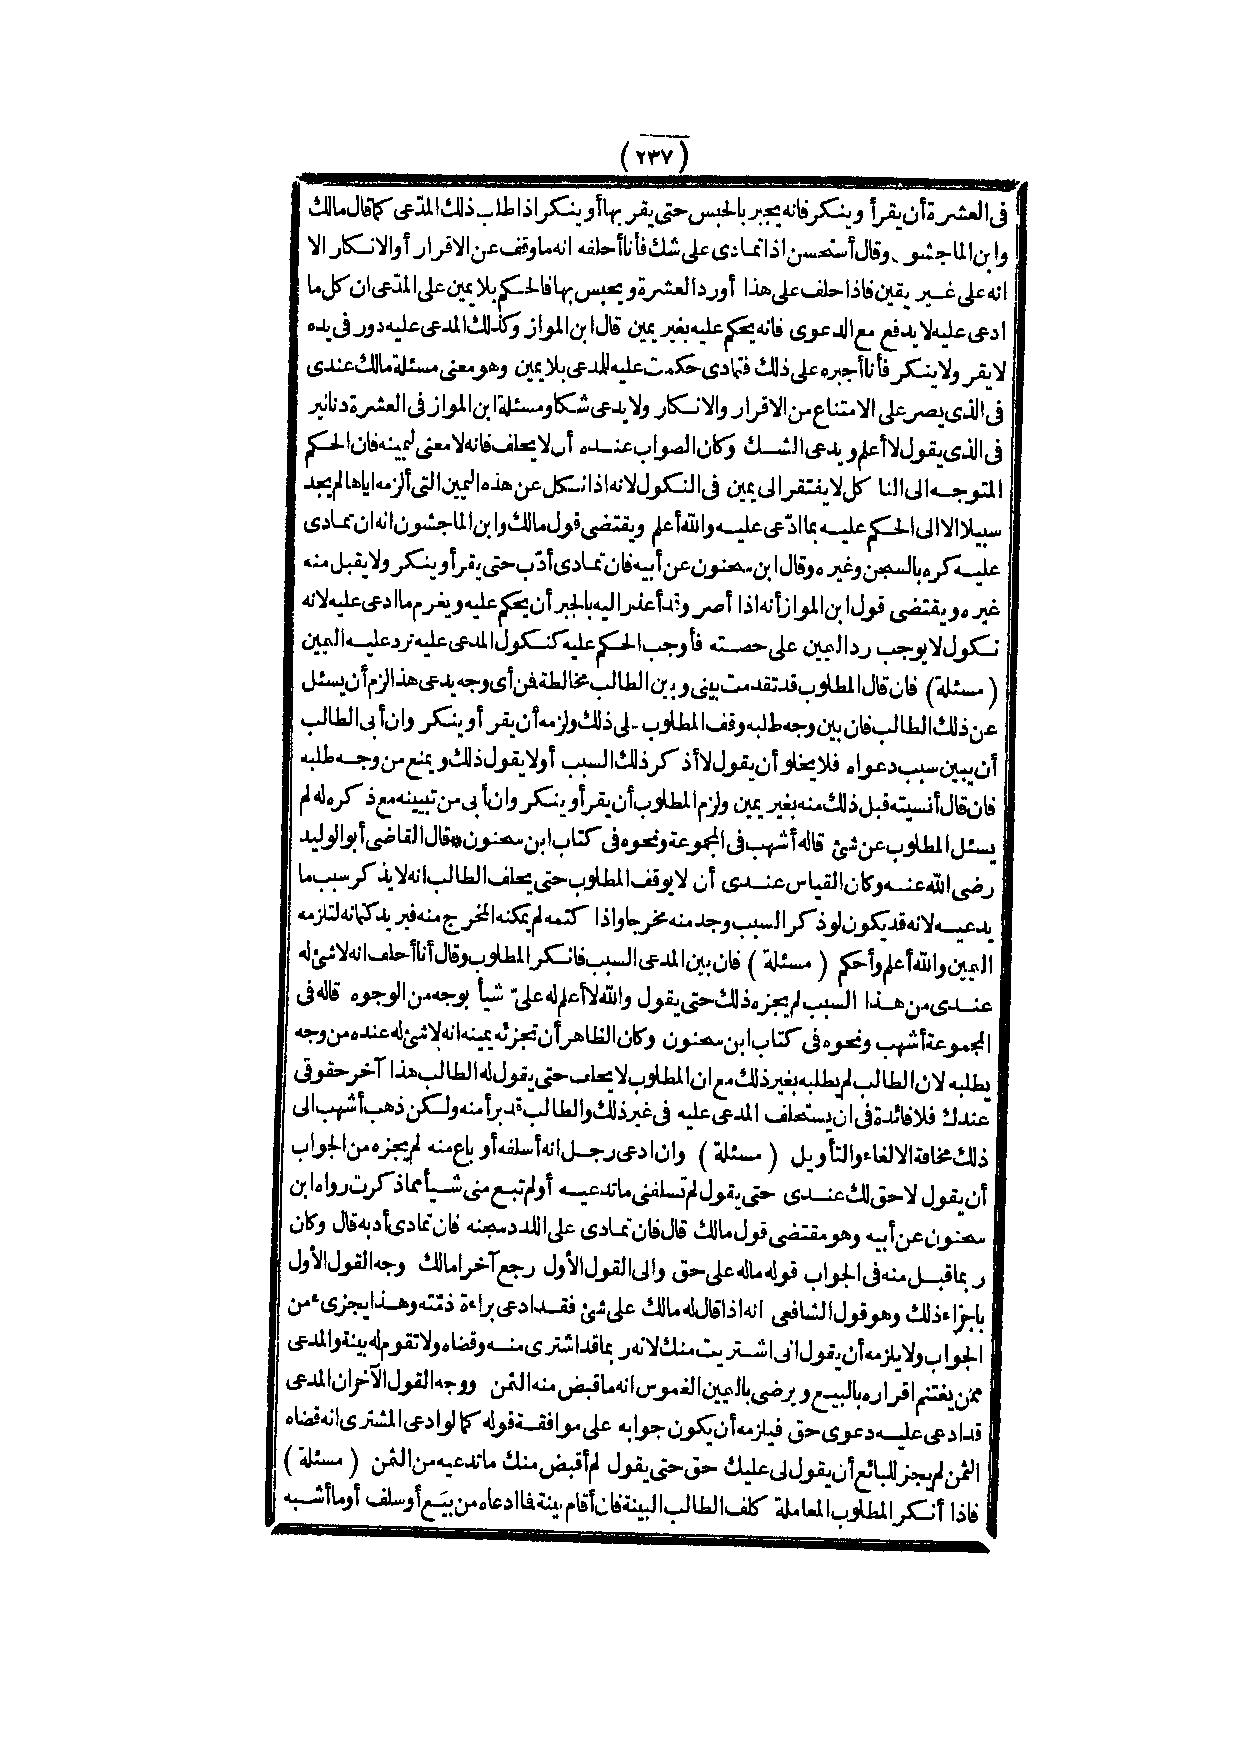 (٢٣٧)
فى العشرة أن يقرأ وينكر فانه يجبر بالحبس حتى يقر بها أو ينكر اذا طلب ذلك المدّعى كما قال مالك
وابن الماجشو. وقال أستحسن اذا تمادى على شك فأنا أحلفه انه ما وقف عن الاقرار أوالانكار الا
انه على غير يقين فاذا حلف على هذا أورد العشرة ويحبس بها فالحكم بلا يمين على المدّعى ان كل ما
ادعى عليه لا يدفع مع الدعوى فانه يحكم عليه بغير يمين قال ابن المواز وكذلك المدعى عليه دور فى يده
لا يقر ولا ينكر فأنا أجبره على ذلك فتمادى حكمت عليه للمدعى بلا يمين وهو معنى مسئلة مالك عندى
فى الذى يصر على الامتناع من الاقرار والانكار ولا يدعى شكا ومسئلة ابن المواز فى العشرة دنانير
فى الذى يقول لا أعلم ويدعى الشك وكان الصواب عنده أن لا يحلف فانه لا معنى ليمينه فان الحكم
المتوجه الى الناكل لا يفتقر الى يمين فى النكول لانه اذا نكل عن هذه اليمين التى ألزمه اياها لم يجد
سبيلا الا الى الحكم عليه بما ادّعى عليه والله أعلم ويقتضى قول مالك وابن الماجشون انه ان تمادى
عليه كره بالسجن وغيره وقال ابن سحنون عن أبيه فان تمادى أدّب حتى يقر أو ينكر ولا يقبل منه
غيره ويقتضى قول ابن المواز أنه اذا أصر وقد أعذر اليه بالجبر أن يحكم عليه ويغرم ما ادعى عليه لانه
نكول لا يوجب رد اليمين على خصمه فأوجب الحكم عليه كنكول المدعى عليه ترد عليه اليمين
(مسئلة) فان قال المطلوب قد تقدمت بينى وبين الطالب مخالطة فمن أى وجه يدعى هذا الزم أن يسئل
عن ذلك الطالب فان بين وجه طلبه وقف المطلوب على ذلك ولزمه أن يقر أو ينكر وان أبى الطالب
أن يبين سبب دعواه فلا يخلو أن يقول لا أذكر ذلك السبب أولا يقول ذلك ويمنع من وجه طلبه
فان قال أنسيته قبل ذلك منه بغير يمين ولزم المطلوب أن يقر أو ينكر وان أبى من تبيينه مع ذكره له لم
يسئل المطلوب عن شئ قاله أشهب فى المجموعة ونحوه فى كتاب ابن سحنون * قال القاضى أبو الوليد
رضى الله عنه وكان القياس عندى أن لا يوقف المطلوب حتى يحلف الطالب انه لا يذكر سبب ما
يدعيه لانه قد يكون لو ذكر السبب وجد منه مخرجا واذا كتمه لم يمكنه المخرج منه فيريد كتمانه لتلزمه
اليمين والله أعلم وأحكم (مسئلة) فان بين المدعى السبب فانكر المطلوب وقال أنا أحلف انه لا شئ له
عندى من هذا السبب لم يجزه ذلك حتى يقول والله لا أعلم له علىّ شيأ بوجه من الوجوه قاله فى
المجموعة أشهب ونحوه فى كتاب ابن سحنون وكان الظاهر أن تجزئه يمينه انه لا شئ له عنده من وجه
يطلبه لان الطالب لم يطلبه بغير ذلك مع ان المطلوب لا يحلف حتى يقول له الطالب هذا آخر حقوقى
عندك فلا فائدة فى ان يستحلف المدعى عليه فى غير ذلك والطالب قد برأ منه ولكن ذهب أشهب الى
ذلك مخافة الالغاء والتأويل (مسئلة) وان ادعى رجل انه أسلفه أو باع منه لم يجزه من الجواب
أن يقول لا حق لك عندى حتى يقول لم تسلفنى ما تدعيه أولم تبع منى شيأ مما ذكرت رواه ابن
سحنون عن أبيه وهو مقتضى قول مالك قال فان تمادى على اللدد سجنه فان تمادى أدبه قال وكان
ربما قبل منه فى الجواب قوله ماله على حق والى القول الأول رجع آخرا مالك وجه القول الأول
باجزاء ذلك وهو قول الشافعى انه اذا قال له مالك على شئ فقد ادعى براءة ذمته وهذا يجزىء من
الجواب ولا يلزمه أن يقول انى اشتريت منك لانه ربما قد اشترى منه وقضاه ولا تقوم له بينة والمدعى
ممن يغتنم اقراره بالبيع ويرضى باليمين الغموس انه ما قبض منه الثمن ووجه القول الآخر ان المدعى
قد ادعى عليه دعوى حق فيلزمه أن يكون جوابه على موافقة قوله كما لو ادعى المشترى انه قضاه
الثمن لم يجز للبائع أن يقول لى عليك حق حتى يقول لم أقبض منك ما تدعيه من الثمن (مسئلة)
فاذا أنكر المطلوب المعاملة كلف الطالب البينة فان أقام بينة فما ادعاه من بيع أو سلف أو ما أشبه